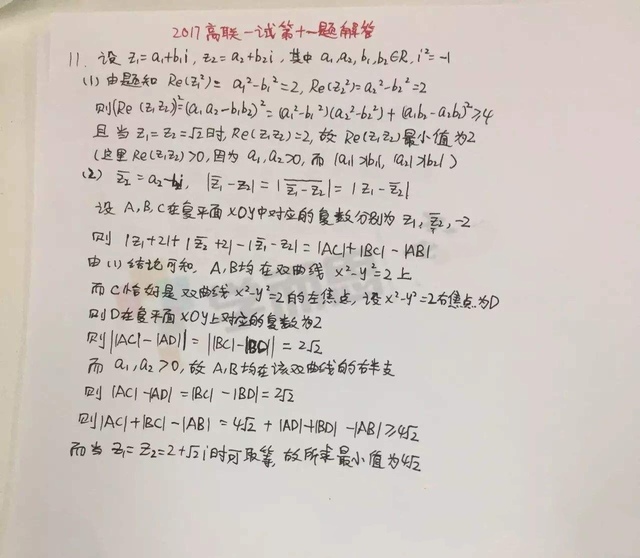 2017高联一试第十一题解答
11. 设 z₁=a₁+b₁i, z₂=a₂+b₂i, 其中 a₁,a₂,b₁,b₂∈R, i²=-1
(1) 由题知 Re(z₁²)= a₁²-b₁²=2, Re(z₂²)=a₂²-b₂²=2
则(Re(z₁z₂))²=(a₁a₂-b₁b₂)²=(a₁²-b₁²)(a₂²-b₂²)+(a₁b₂-a₂b₁)²≥4
且当 z₁=z₂=√2时, Re(z₁z₂)=2, 故 Re(z₁z₂)最小值为2
(这里 Re(z₁z₂)>0, 因为 a₁,a₂>0, 而 |a₁|>|b₁|, |a₂|>|b₂|)
(2) z̅₂=a₂-b₂i, |z̅₁-z₂|=|\overline{z̅₁-z₂}|=|z₁-z̅₂|
设 A,B,C在复平面 xOy中对应的复数分别为 z₁, z̅₂, -2
则 |z₁+2|+|z̅₂+2|-|z̅₁-z₂|=|AC|+|BC|-|AB|
由(1)结论可知, A,B均在双曲线 x²-y²=2上
而C恰好是双曲线 x²-y²=2的左焦点, 设 x²-y²=2右焦点为D
则D在复平面 xOy上对应的复数为2
则||AC|-|AD||=||BC|-|BD||=2√2
而 a₁,a₂>0, 故A,B均在该双曲线的右半支
则 |AC|-|AD|=|BC|-|BD|=2√2
则|AC|+|BC|-|AB|=4√2+|AD|+|BD|-|AB|≥4√2
而当 z₁=z₂=2+√2i时可取等, 故所求最小值为4√2